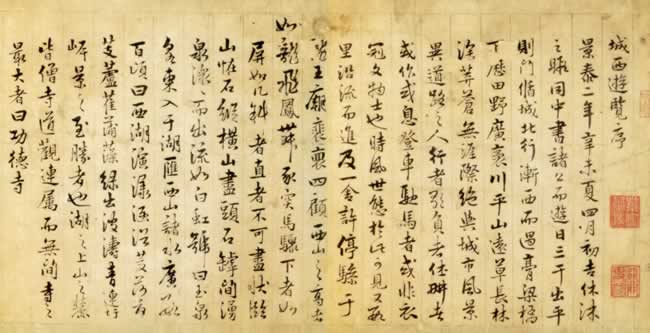 城西遊覽序
景泰二年辛未夏四月初吉休沐
之暇同中書諸公而遊日三竿出平
則門循城北行漸西而過膏梁橋
下歷田野廣袤川平山遠草長林
深莽蒼無涯際絕與城市風景
異道路之人行者歌負者休耕者
或作或息登車馳馬者或非衣
冠文物士也時風世態於此可見又數
里沿流而進及一舍許停驂于
王廟四顧西山之高者
如龍飛鳳舞豕突馬驟下者如
屏如几斜者直者不可盡狀臨
山怪石縱橫山盡頭石罅間湧
泉而出流如白虹號曰玉泉
東入于湖匯西山諸水廣可數
百頃曰西湖演漾荷有
芰蘆萑蒲藻綠出波濤香連
岸景之至勝者也湖之上山之麓
皆僧寺道觀連屬而無間寺之
最大者曰功德寺